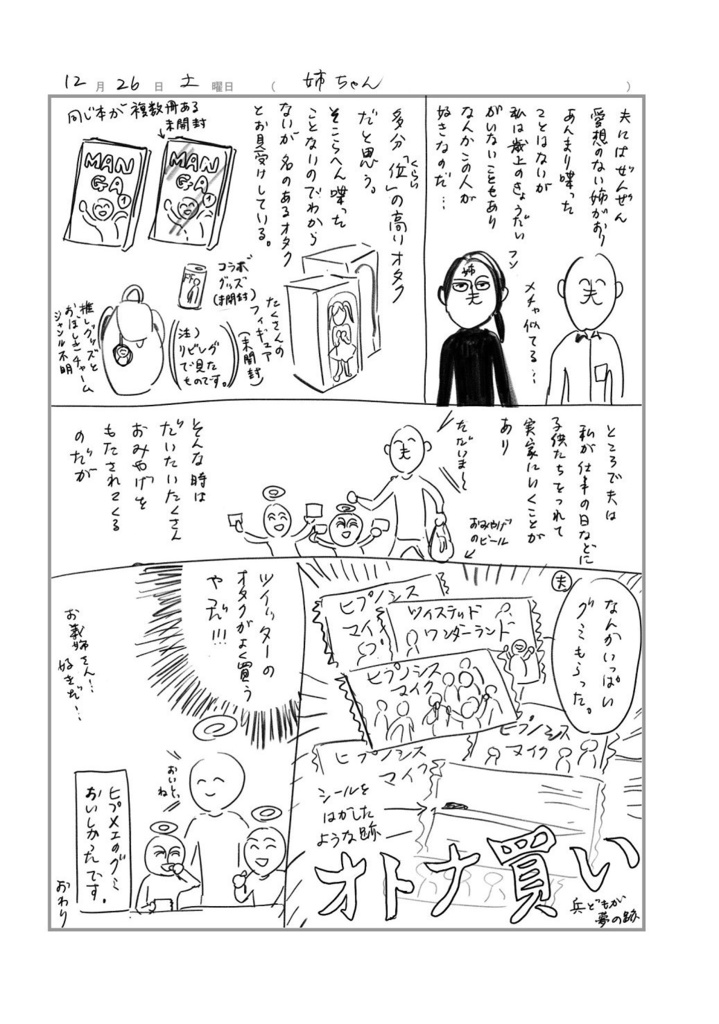 12月26日 土曜日 ( 姉ちゃん )
夫にはぜんぜん
愛想のない姉がおり
あんまり喋った
ことはないが
私は歳上のきょうだい
がいないこともあり
なんかこの人が
好きなのだ…
フン
姉
夫
メチャ似てる…
多分「位」の高いオタク
くらい
だと思う。
そこらへん喋った
ことないのでわから
ないが名のあるオタク
とお見受けしている。
同じ本が複数冊ある
未開封
MAN
GA
1
MAN
GA
1
コラボ
グッズ
(未開封)
たくさんの
フィギュア
(未開封)
(注)
リビングで見た
ものです。
推しグッズと
おぼしきチャーム
ジャンル不明
ところで夫は
私が仕事の日などに
子供たちをつれて
実家にいくことが
あり
ただいま〜
夫
おみやげ
のビール
そんな時は
だいたいたくさん
おみやげを
もたされてくる
のだが
夫
なんかいっぱい
グミもらった。
ヒプノシス
マイク
ツイステッド
ワンダーランド
ヒプノシス
マイク
ヒプノシス
マイク
ヒプノシス
マイク
シールを
はがした
ような跡
オトナ買い
兵どもが
夢の跡
ツイッターの
オタクがよく買う
やつだ!!!
お義姉さん…
好きだ…!
おいしい
ね
ヒプマイのグミ
おいしかったです。
おわり